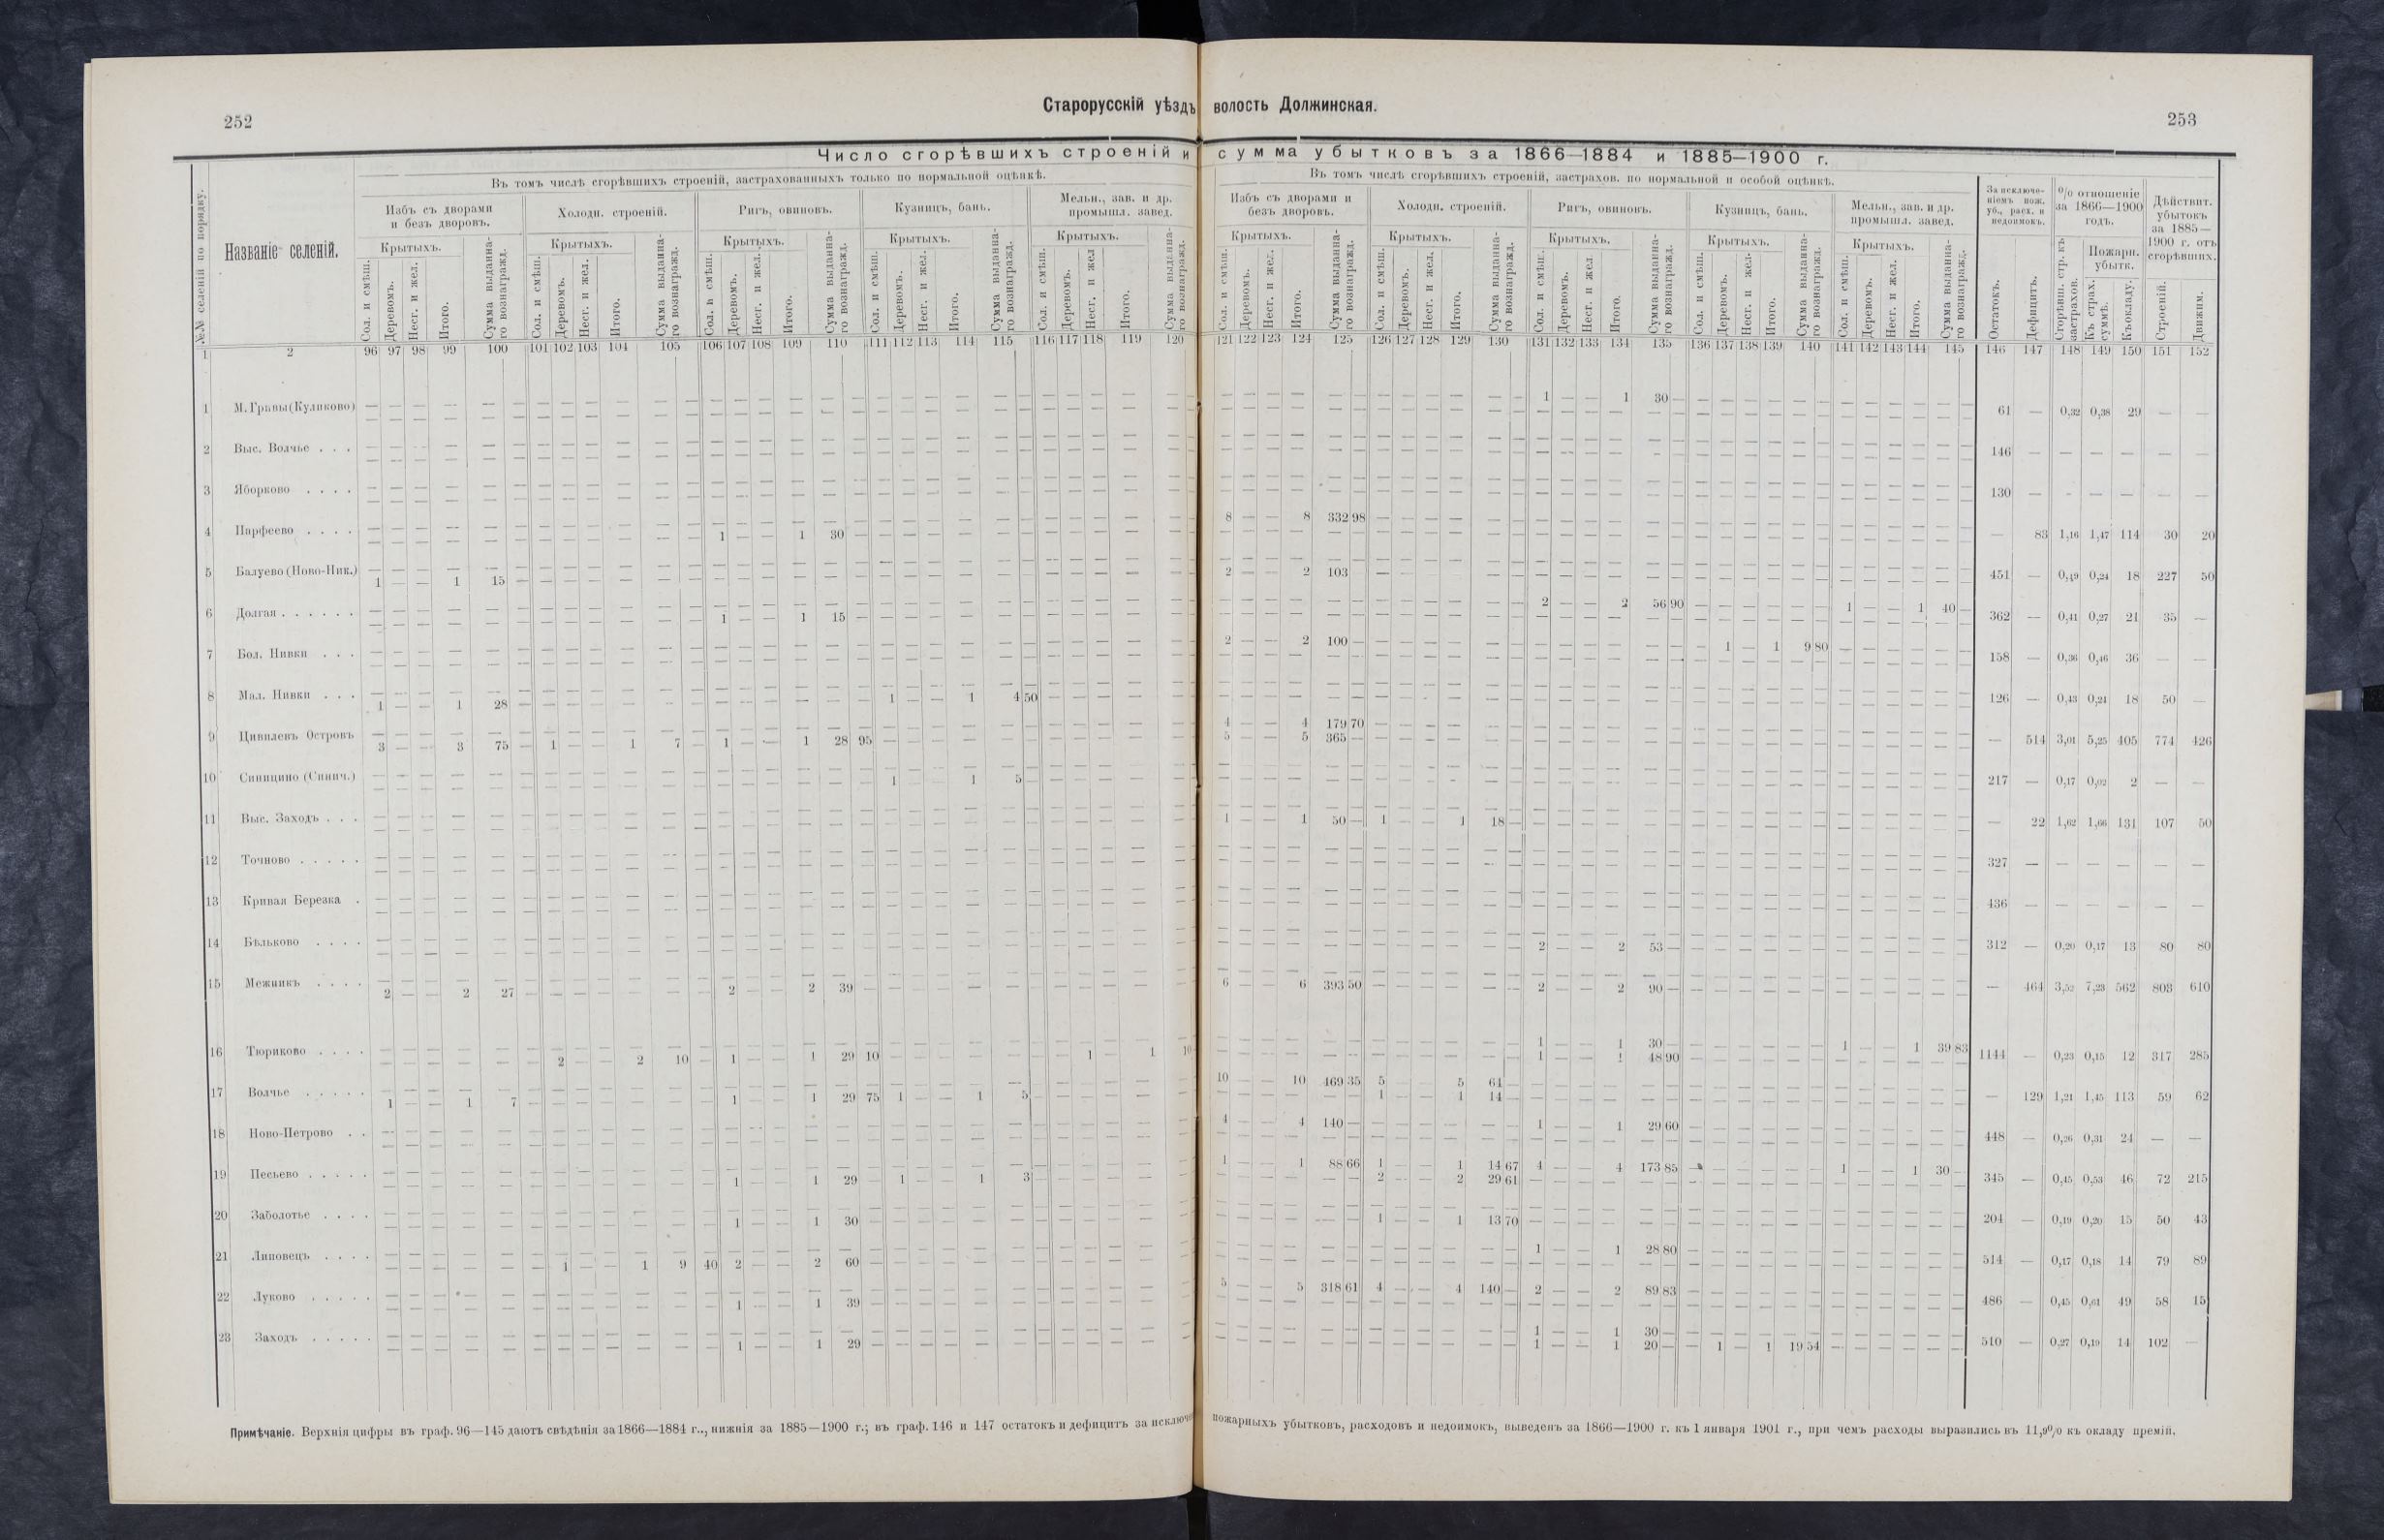 252
Старорусскій уѣздъ волость Должинская.
253
Число сгорѣвшихъ строеній и сумма убытковъ за 1866—1884 и 1885—1900 г.
№№ селеній по порядку.
Названіе селеній.
Въ томъ числѣ сгорѣвшихъ строеній, застрахованныхъ только по нормальной оцѣнкѣ.
Избъ съ дворами и безъ дворовъ.
Холодн. строеній.
Ригъ, овиновъ.
Кузницъ, бань.
Мельн., зав. и др. промышл. завед.
Крытыхъ. Крытыхъ. Крытыхъ. Крытыхъ. Крытыхъ.
Сол. и смѣш. Деревомъ. Несг. и жел. Итого. Сумма выданнаго вознагражд.
Въ томъ числѣ сгорѣвшихъ строеній, застрахов. по нормальной и особой оцѣнкѣ.
Избъ съ дворами и безъ дворовъ.
Холодн. строеній.
Ригъ, овиновъ.
Кузницъ, бань.
Мельн., зав. и др. промышл. завед.
Крытыхъ. Крытыхъ. Крытыхъ. Крытыхъ. Крытыхъ.
За исключеніемъ пож. уб., расх. и недоимокъ.
Остатокъ. Дефицитъ.
% отношеніе за 1866—1900 годъ.
Сгорѣвш. стр. къ застрахов.
Пожарн. убытк.
Къ страх. суммѣ. Къ окладу.
Дѣйствит. убытокъ за 1885—1900 г. отъ сгорѣвшихъ.
Строеній. Движим.
1 2 96 97 98 99 100 101 102 103 104 105 106 107 108 109 110 111 112 113 114 115 116 117 118 119 120 121 122 123 124 125 126 127 128 129 130 131 132 133 134 135 136 137 138 139 140 141 142 143 144 145 146 147 148 149 150 151 152
1 М. Гривы (Куликово) 1 — — 1 30 — 61 — 0,32 0,38 29 — —
2 Выс. Волчье . . . 146 — — — — — —
3 Яборково . . . . 130 — — — — — —
4 Парфеево . . . . 1 — — 1 30 — 8 — — 8 332 98 — 83 1,16 1,47 114 30 20
5 Балуево (Ново-Ник.) 1 — — 1 15 — 2 — — 2 103 451 — 0,49 0,24 18 227 50
6 Долгая . . . . . . 1 — — 1 15 — 2 — — 2 56 90 1 — — 1 40 — 362 — 0,41 0,27 21 35 —
7 Бол. Нивки . . . 2 — — 2 100 — 1 — 1 9 80 158 — 0,36 0,46 36 — —
8 Мал. Нивки . . . 1 — — 1 28 — 1 — — 1 4 50 126 — 0,43 0,24 18 50 —
9 Цивилевъ Островъ 3 — — 3 75 — 1 — — 1 7 — 1 — — 1 28 95 4 — — 4 179 70 5 — — 5 365 — — 514 3,01 5,25 405 774 426
10 Синицино (Синич.) 1 — — 1 5 217 — 0,17 0,02 2 — —
11 Выс. Заходъ . . . 1 — — 1 50 — 1 — — 1 18 — — 22 1,62 1,66 131 107 50
12 Точново . . . . . 327 — — — — — —
13 Кривая Березка . 436 — — — — — —
14 Бѣльково . . . . 2 — — 2 53 — 312 — 0,20 0,17 13 80 80
15 Межникъ . . . . 2 — — 2 27 — 2 — — 2 39 — 6 — — 6 393 50 2 — — 2 90 — — 464 3,52 7,23 562 803 610
16 Тюриково . . . . 2 — — 2 10 — 1 — — 1 29 10 1 1 10 1 — — 1 30 — 1 — — 1 48 90 1 — — 1 39 83 1144 — 0,23 0,15 12 317 285
17 Волчье . . . . . 1 — — 1 7 — 1 — — 1 29 75 1 — — 1 5 10 — — 10 469 35 5 5 64 — 1 1 14 — — 129 1,21 1,45 113 59 62
18 Ново-Петрово . . 4 — — 4 140 — 1 — — 1 29 60 448 — 0,26 0,31 24 — —
19 Песьево . . . . . 1 — — 1 29 — 1 — — 1 3 1 — — 1 88 66 1 — — 1 14 67 4 — — 4 173 85 2 — — 2 29 61 1 — — 1 30 — 345 — 0,45 0,53 46 72 215
20 Заболотье . . . . 1 — — 1 30 — 1 — — 1 13 70 204 — 0,19 0,20 15 50 43
21 Липовецъ . . . . 1 — — 1 9 40 2 — — 2 60 — 1 — — 1 28 80 514 — 0,17 0,18 14 79 89
22 Луково . . . . . 1 — — 1 39 — 5 — — 5 318 61 4 — — 4 140 — 2 — — 2 89 83 486 — 0,45 0,61 49 58 15
23 Заходъ . . . . . 1 — — 1 29 — 1 — — 1 30 — 1 — — 1 20 — 1 — 1 19 54 510 — 0,27 0,19 14 102 —
Примѣчаніе. Верхнія цифры въ граф. 96—145 даютъ свѣдѣнія за 1866—1884 г.., нижнія за 1885—1900 г.; въ граф. 146 и 147 остатокъ и дефицитъ за исключе пожарныхъ убытковъ, расходовъ и недоимокъ, выведенъ за 1866—1900 г. къ 1 января 1901 г., при чемъ расходы выразились въ 11,9% къ окладу премій.